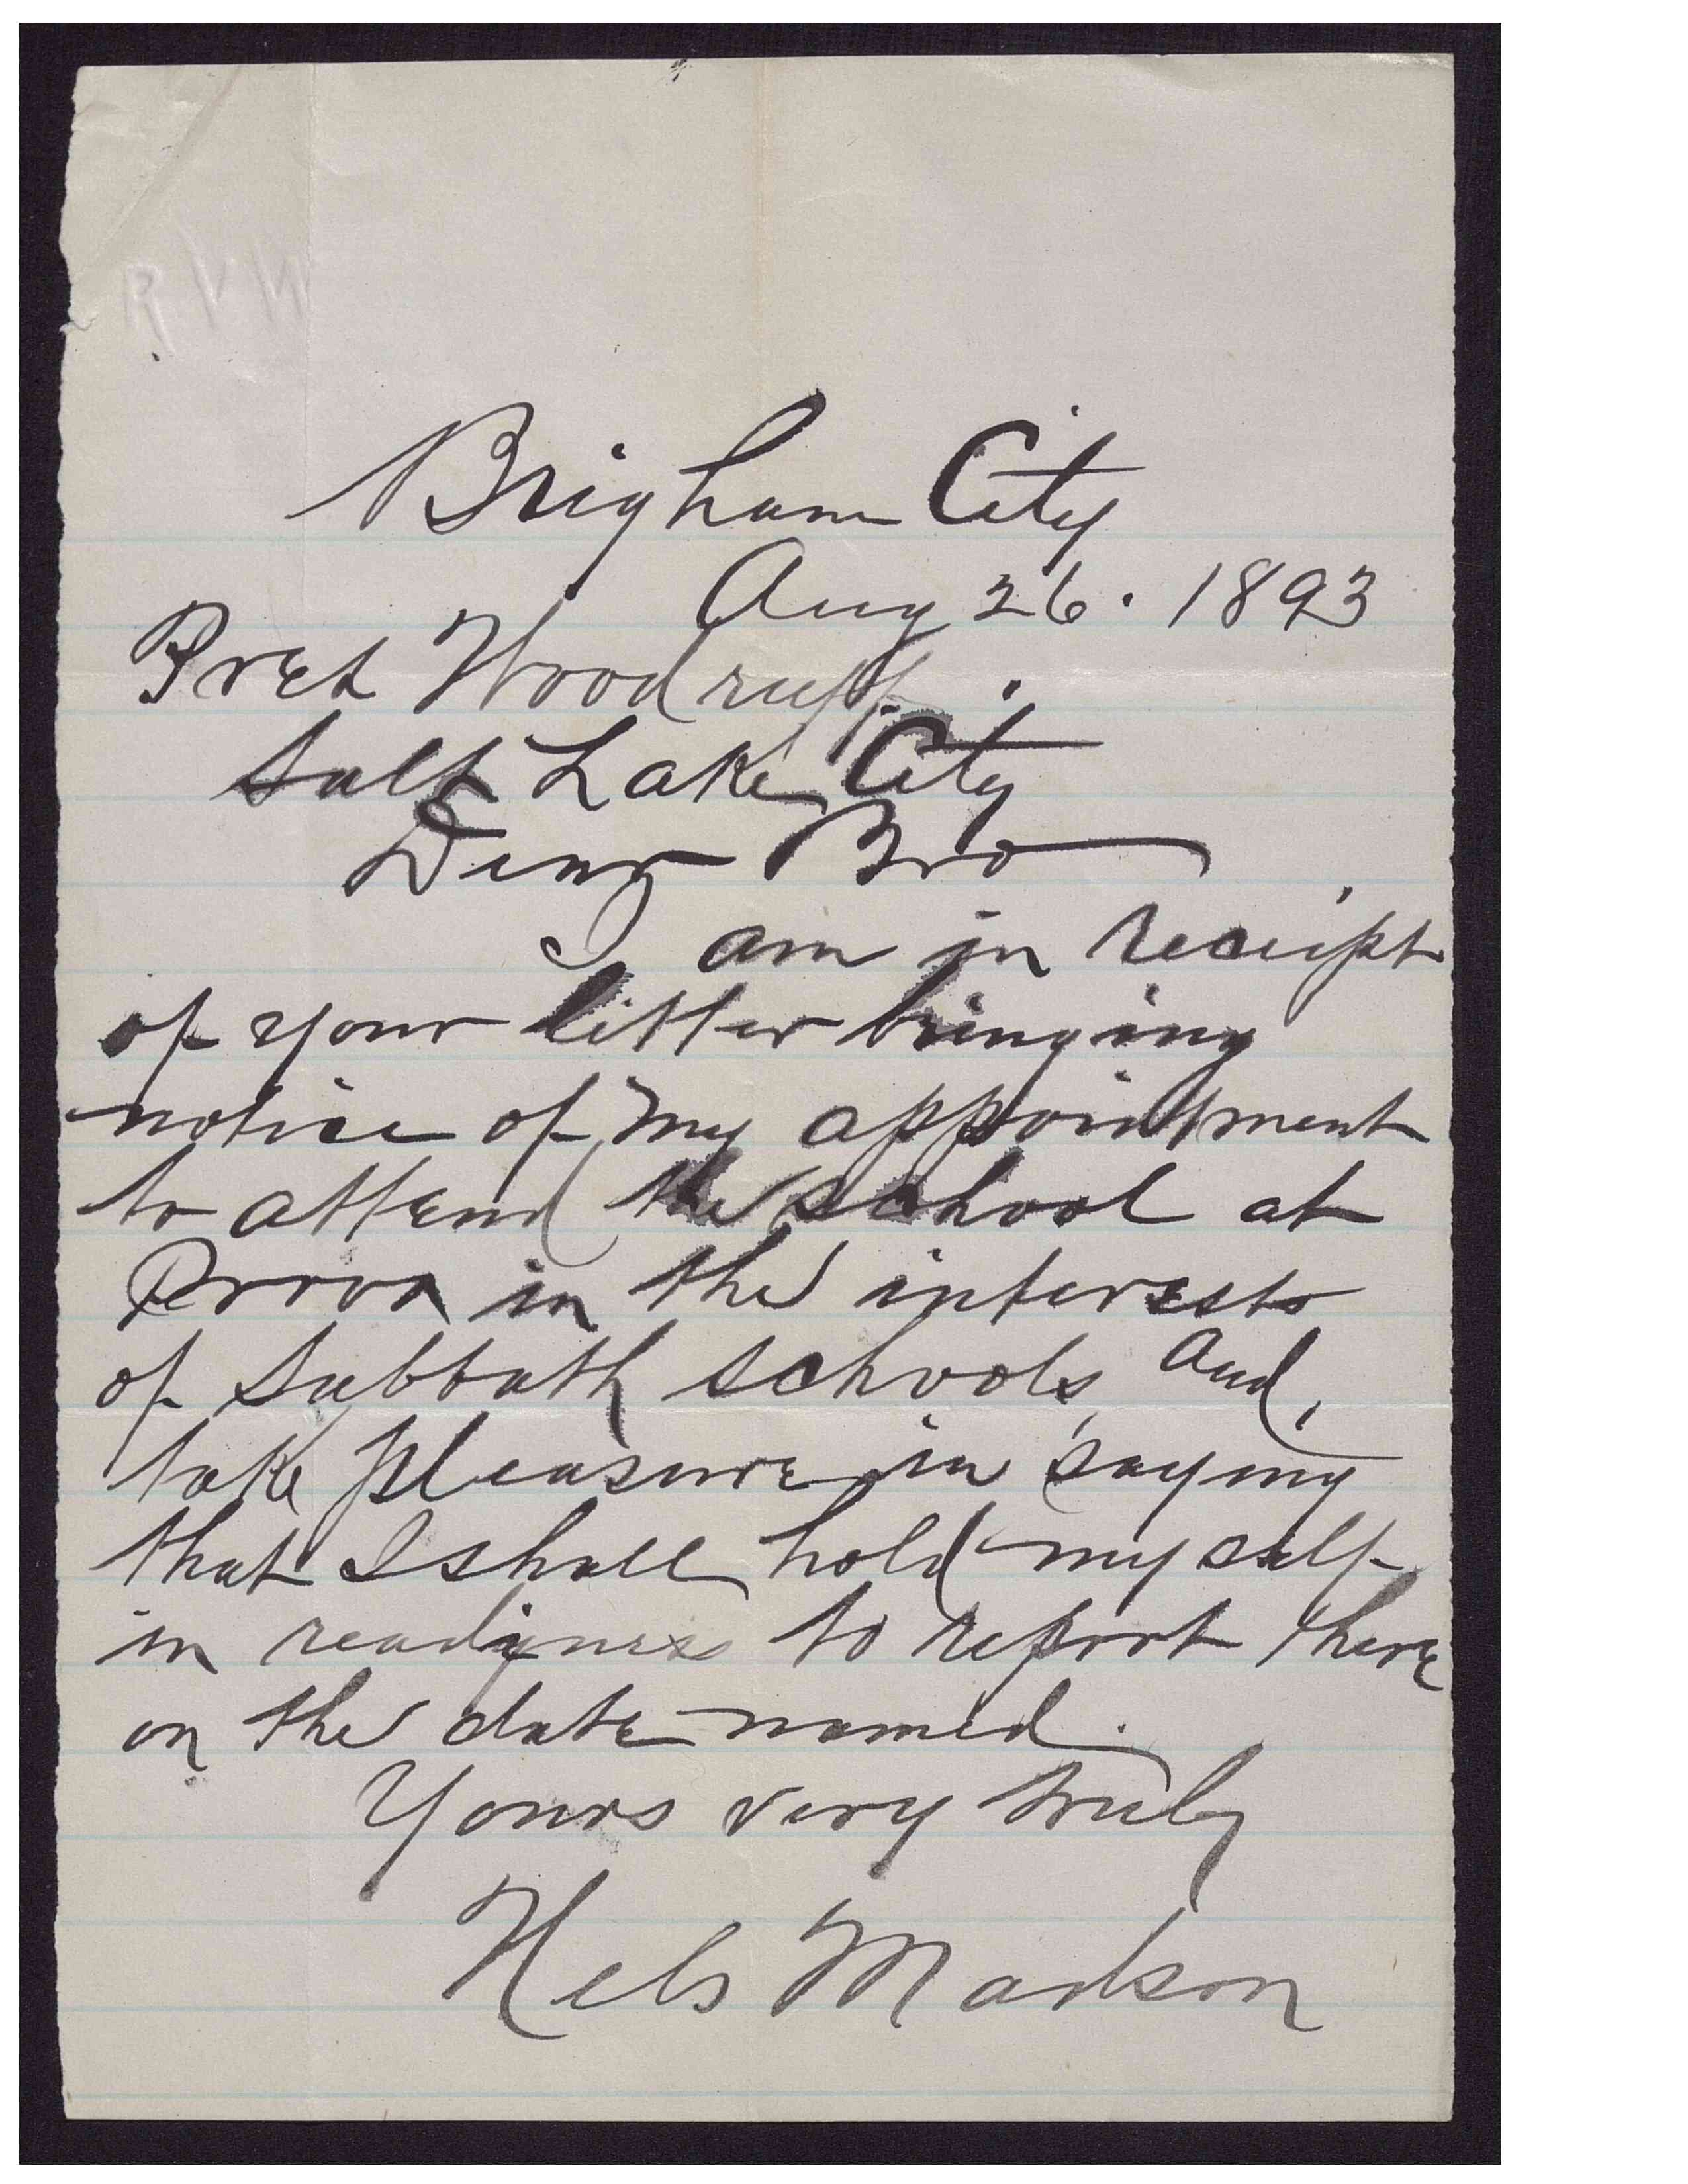 RVW
Brigham City
Aug 26. 1893
Prest Woodruff.
Salt Lake City
Dear Bro
I am in receipt
of your letter bringing
notice of my appointment
to attend the school at
Provo in the interests
of Sabbath schools, and,
take pleasure in saying
that I shall hold myself
in readyness to report there
on the date named.
Yours very truly
Nels Madson